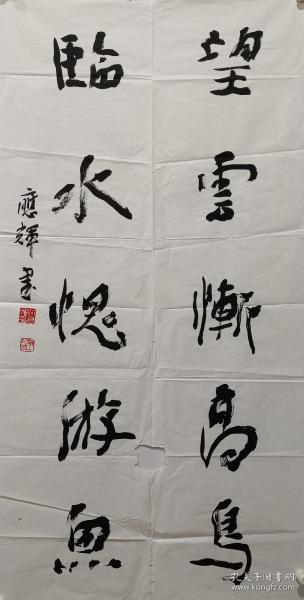 望雲慚高鳥
臨水愧游魚
應輝書
孔夫子旧书网